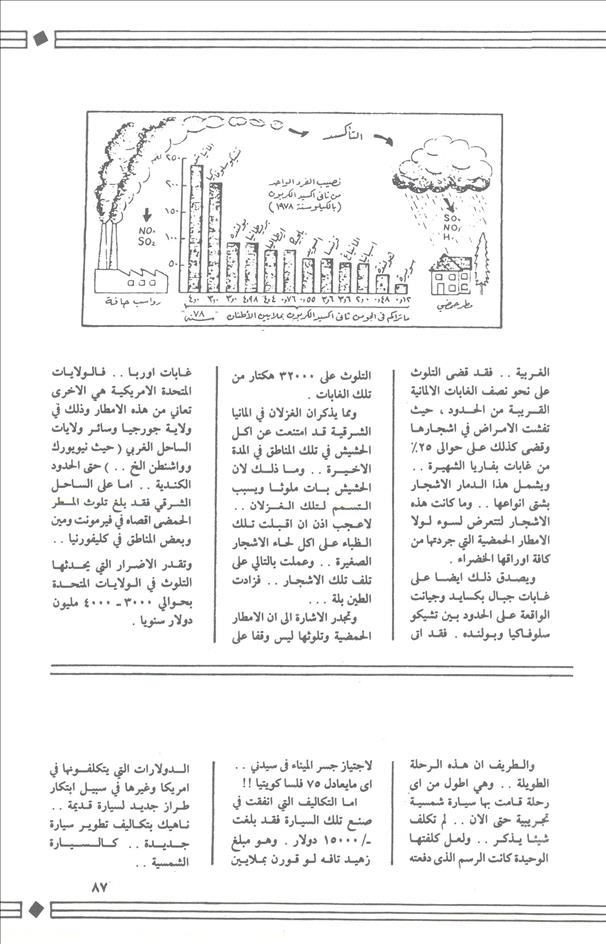 التأكسد
نصيب الفرد الواحد
من ثاني اكسيد الكربون
(بالكيلو سنة ١٩٧٨)
٢٥٠
٢٠٠
١٥٠
١٠٠
٥٠
NO₂
SO₂
رواسب جافة
بولنده
بريطانيا
ايطاليا
بلجيكا
فرنسا
اسبانيا
سويسرة
٤٫٠ ٣٫٠ ٣٫٠ ٤٫٩٨ ٤٫٤ ٠٫٧٦ ٠٫٥٥ ٣٫٦ ٣٫٦ ٢٫٠ ٠٫٤٨ ٠٫١٢
ماتراكم في الجو من ثاني اكسيد الكربون بملايين الأطنان سنة ٧٨
مطر حمضي
الغربية .. فقد قضى التلوث
على نحو نصف الغابات الالمانية
القريبة من الحدود ، حيث
تفشت الامراض في اشجارها
وقضى كذلك على حوالى ٢٥٪
من غابات بفاريا الشهيرة ..
ويشمل هذا الدمار الاشجار
بشتى انواعها .. وما كانت هذه
الاشجار لتتعرض لسوء لولا
الامطار الحمضية التي جردتها من
كافة اوراقها الخضراء .
ويصدق ذلك ايضا على
غابات جبال بكسايد وجيانت
الواقعة على الحدود بين تشيكو
سلوفاكيا وبولنده . فقد اتى
التلوث على ٣٢٠٠٠ هكتار من
تلك الغابات .
ومما يذكر ان الغزلان في المانيا
الشرقية قد امتنعت عن اكل
الحشيش في تلك المناطق في المدة
الاخيرة .. وما ذلك لان
الحشيش بات ملوثا ويسبب
التسمم لتلك الغزلان ..
لاعجب اذن ان اقبلت تلك
الظباء على اكل لحاء الاشجار
الصغيرة .. وعملت بالتالي على
تلف تلك الاشجار .. فزادت
الطين بلة ...
وتجدر الاشارة الى ان الامطار
الحمضية وتلوثها ليس وقفا على
غابات اوربا .. فالولايات
المتحدة الامريكية هي الاخرى
تعاني من هذه الامطار وذلك في
ولاية جورجيا وسائر ولايات
الساحل الغربي (حيث نيويورك
وواشنطن الخ ..) حتى الحدود
الكندية .. اما على الساحل
الشرقي فقد بلغ تلوث المطر
الحمضى اقصاه في فيرمونت ومين
وبعض المناطق في كليفورنيا ..
وتقدر الاضرار التي يحدثها
التلوث في الولايات المتحدة
بحوالي ٣٠٠٠ - ٤٠٠٠ مليون
دولار سنويا .
والطريف ان هذه الرحلة
الطويلة .. وهي اطول من اى
رحلة قامت بها سيارة شمسية
تجريبية حتى الان .. لم تكلف
شيئا يذكر .. ولعل كلفتها
الوحيدة كانت الرسم الذى دفعته
لاجتياز جسر الميناء في سيدني ..
اى مايعادل ٧٥ فلسا كويتيا !!
اما التكاليف التي انفقت في
صنع تلك السيارة فقد بلغت
-/١٥٠٠٠ دولار . وهو مبلغ
زهيد تافه لو قورن بملايين
الدولارات التي يتكلفونها في
امريكا وغيرها في سبيل ابتكار
طراز جديد لسيارة قديمة ..
ناهيك بتكاليف تطوير سيارة
جديدة .. كالسيارة
الشمسية ..
٨٧